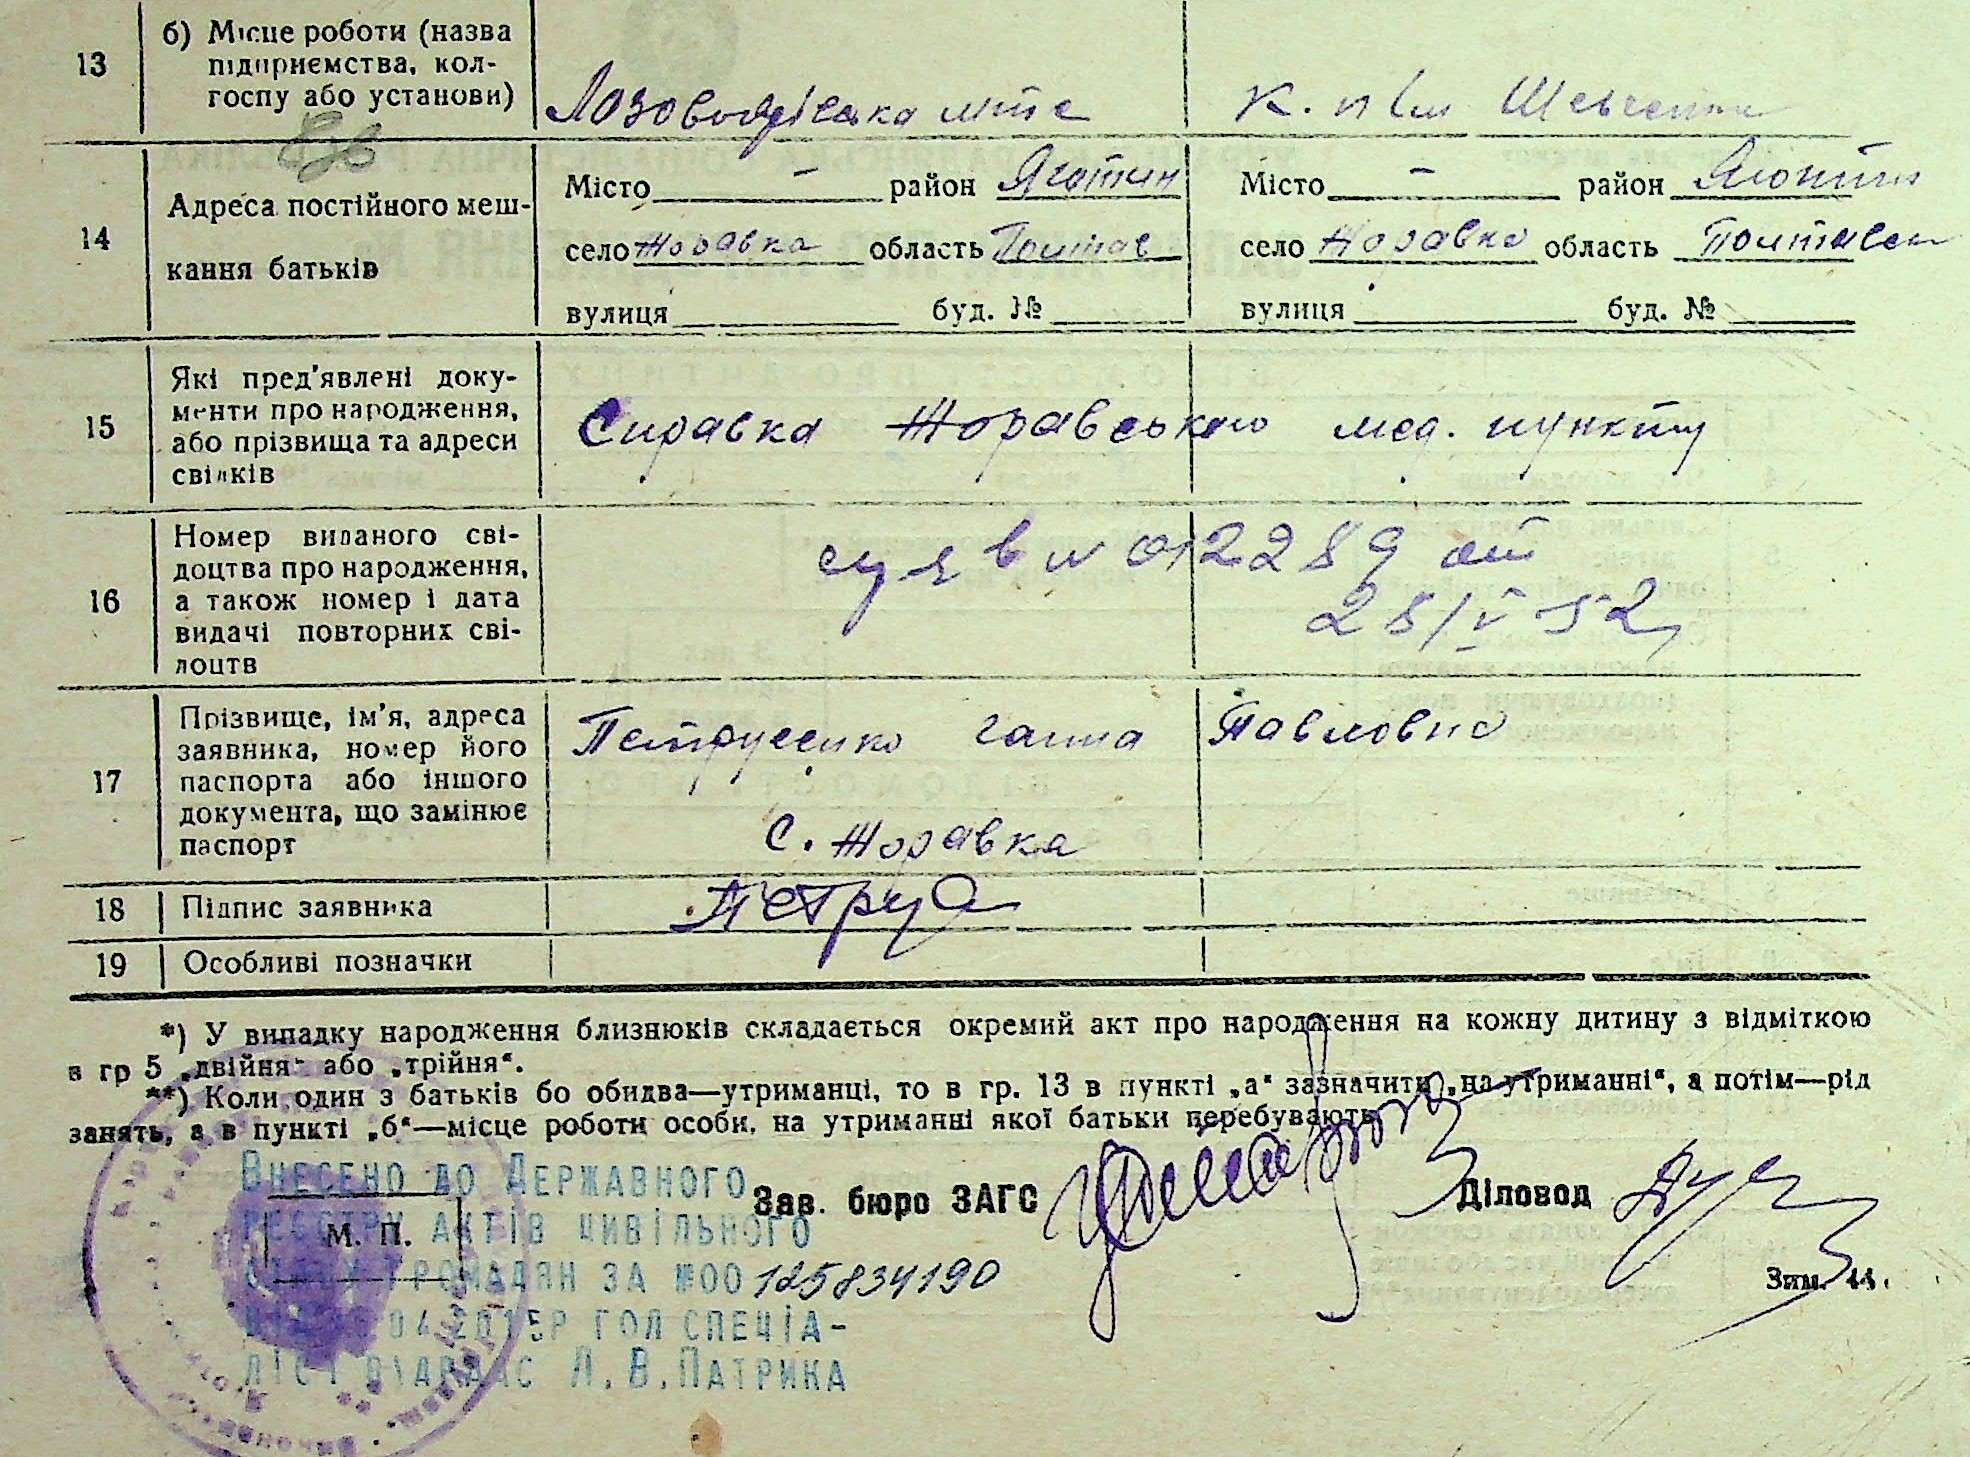 13 б) Місце роботи (назва підприємства, колгоспу або установи)
Лозовоярівська мтс
К. п ім Шевченка
14 Адреса постійного мешкання батьків
Місто – район Яготин
село Жоравка область Полтав
вулиця буд. №
Місто – район Яготин
село Жоравка область Полтавськ
вулиця буд. №
15 Які пред'явлені документи про народження, або прізвища та адреси свідків
Справка Жоравського мед. пункту
16 Номер виданого свідоцтва про народження, а також номер і дата видачі повторних свідоцтв
012289 от
28/V 52
17 Прізвище, ім'я, адреса заявника, номер його паспорта або іншого документа, що замінює паспорт
Петрусенко Ганна Павловна
с. Жоравка
18 Підпис заявника
19 Особливі позначки
*) У випадку народження близнюків складається окремий акт про народження на кожну дитину з відміткою
в гр 5 „двійня“ або „трійня“.
**) Коли один з батьків бо обидва—утриманці, то в гр. 13 в пункті „а“ зазначити „на утриманні“, а потім—рід
занять, а в пункті „б“—місце роботи особи, на утриманні якої батьки перебувають
Внесено до Державного
реєстру актів цивільного
М. П.
Зав. бюро ЗАГС
Діловод
громадян за №00125834190
04 2015р гол спеціа-
ліст Л. В. Патрика
Зим.